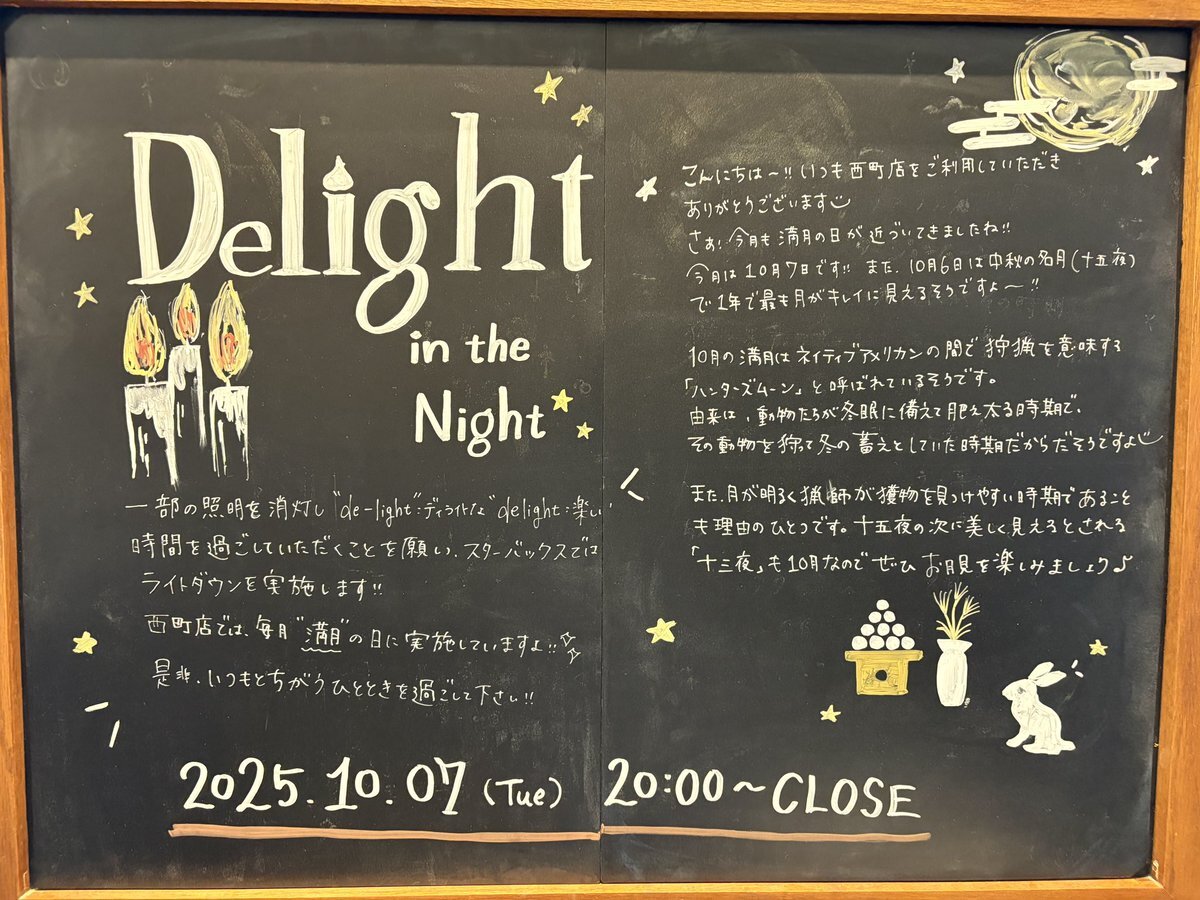 Delight
in the
Night
一部の照明を消灯し"de-light":ディライトな"delight:楽しい
時間を過ごしていただくことを願い、スターバックスでは
ライトダウンを実施します!!
西町店では、毎月"満月"の日に実施していますよ!!
是非、いつもとちがうひとときを過ごして下さい!!
こんにちは〜!! いつも西町店をご利用していただき
ありがとうございます
さぁ!今月も満月の日が近づいてきましたね!!
今月は10月7日です!! また、10月6日は中秋の名月(十五夜)
で1年で最も月がキレイに見えるそうですよ〜!!
10月の満月はネイティブアメリカンの間で狩猟を意味する
「ハンターズムーン」と呼ばれているそうです。
由来は、動物たちが冬眠に備えて肥え太る時期で、
その動物を狩って冬の蓄えとしていた時期だからだそうですよ
また、月が明るく猟師が獲物を見つけやすい時期であること
も理由のひとつです。十五夜の次に美しく見えるとされる
「十三夜」も10月なのでぜひ お月見を楽しみましょう♪
2025.10.07(Tue) 20:00〜CLOSE